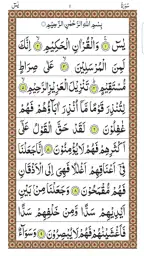 يٰسٓ
بِسْمِ اللهِ الرَّحْمٰنِ الرَّحِيْمِ
يٰسٓ ۝١ وَالْقُرْاٰنِ الْحَكِيْمِ ۝٢ اِنَّكَ
لَمِنَ الْمُرْسَلِيْنَ ۝٣ عَلٰى صِرَاطٍ
مُّسْتَقِيْمٍ ۝٤ تَنْزِيْلَ الْعَزِيْزِ الرَّحِيْمِ ۝٥
لِتُنْذِرَ قَوْمًا مَّآ اُنْذِرَ اٰبَآؤُهُمْ فَهُمْ
غٰفِلُوْنَ ۝٦ لَقَدْ حَقَّ الْقَوْلُ عَلٰٓى
اَكْثَرِهِمْ فَهُمْ لَا يُؤْمِنُوْنَ ۝٧ اِنَّا جَعَلْنَا
فِيْٓ اَعْنَاقِهِمْ اَغْلٰلًا فَهِيَ اِلَى الْاَذْقَانِ
فَهُمْ مُّقْمَحُوْنَ ۝٨ وَجَعَلْنَا مِنْۢ بَيْنِ
اَيْدِيْهِمْ سَدًّا وَّمِنْ خَلْفِهِمْ سَدًّا
فَاَغْشَيْنٰهُمْ فَهُمْ لَا يُبْصِرُوْنَ ۝٩ وَسَوَآءٌ